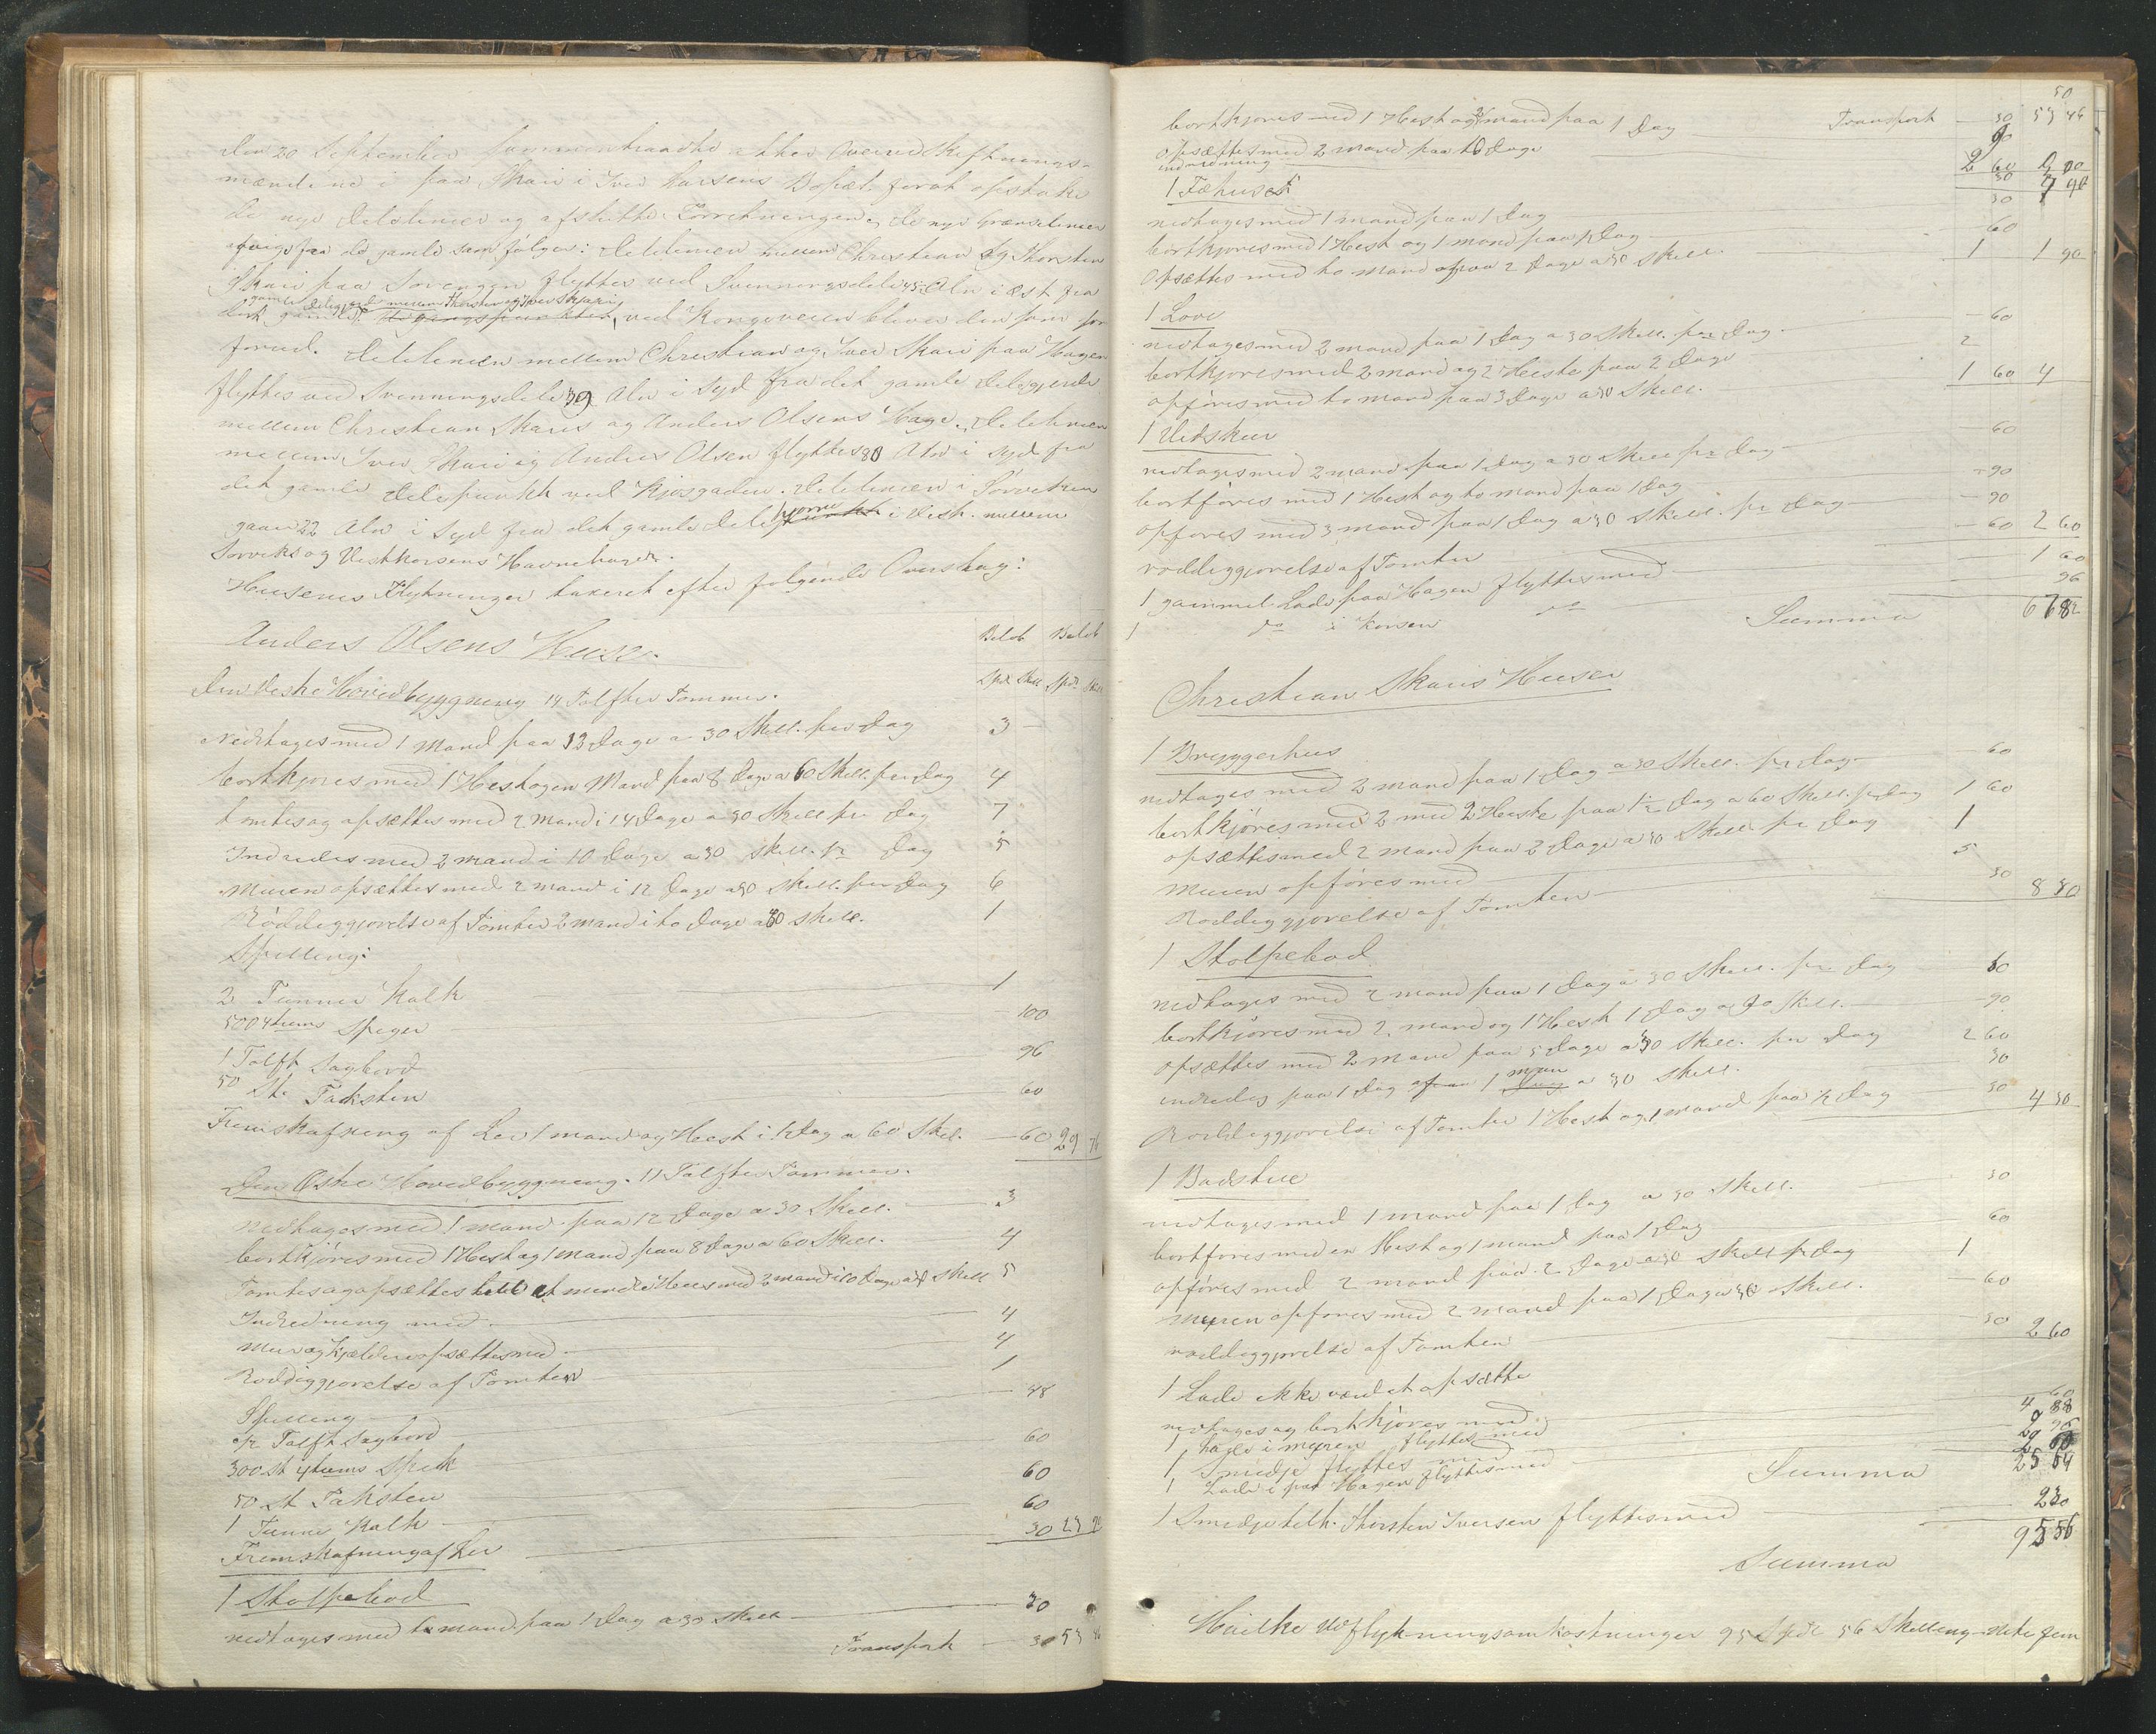 Den 20 September sammentraadte atter Overudskiftnings-
mændene paa Skari i Iver Larsens Bopæl forat opstikke
de nye Delelinier og afslutte Forretningen, de nye Grændselinier
afviger fra de gamle som følger: Delelinien mellem Christian og Thorsten
Skari paa flyttes ved Svenningsdele 45 Alen i øst fra
det gamle delegjerde mellem Thorsten og Iver Skari, ved Kongeveien bliver den som for
forud. Delelinien mellem Christian og Iver Skari paa Hagen
flyttes ved Svenningsdele 39 Alen i Syd fra det gamle Delegjerde
mellem Christian Skaris og Anders Olsens Hage. Delelinien
mellem Iver Skari og Anders Olsen flyttes 80 Alen i Syd fra
det gamle Delepunkt ved Kjosgaden. Delelinien i Sørviken
gaar 22 Alen i Syd fra det gamle Dele hjørne i Vest mellem
Sørviks og Vestkorsens Havnehager.
Husenes Flytninger taxeret efter følgende Overslag:
Anders Olsens Huse. Beløb Beløb
Den Vestre Hovedbyggning 14 Tolfter Tømmer. Spdl Skill Spdl Skill
Nedtages med 1 Mand paa 12 Dage a 30 Skill. per Dag 3
bortkjøres med 1 Hest og en Mand paa 8 Dage a 60 Skill. per Dag 4
tomtes og opsættes med 2 Mand i 14 Dage a 30 Skill pr Dag 7
Indredes med 2 mand i 10 Dage a 30 Skill. pr Dag 5
Muren opsættes med 2 mand i 12 Dage a 30 Skill. per Dag 6
Røddiggjørelse af Tomten 2 mand i to Dage a 30 skill. 1
Spilling:
2 Tønner Kalk 1
500 4tums Spiger 100
1 Tolft Sagbord 96
50 St. Taksten 60
Fremskafning af Ler 1 mand og Hest i 1 Dag a 60 Skil. 60 29 76
Den Østre Hovedbyggning. 11 Tolfter Tømmer.
Nedtages med 1 mand paa 12 Dage a 30 Skill. 3
bortkjøres med 1 Hest og 1 Mand paa 8 Dage a 60 Skill. 4
Tomtes og opsættes til et mindre Huus med 2 mand i 10 Dage a 30 skill 5
Indredning med. 4
Mur og Kjælder opsættes med. 4
Røddiggjørelse af Tomten 1
Spilling 48
1/2 Tolft Sagbord 60
300 St 4tums Spik 60
50 St Taksten 60
1 Tønne Kalk
Fremskafning af Ler 30 23
1 Stolpebod
nedtages med to mand paa 1 Dag a 30 skill 30
Transport 30 53 46
50
bortkjøres med 1 Hest og mand paa 1 Dag Transport 30 53 46
opsættes med 2 mand paa Dage
indredning 2 60
1 Fæhuset
nedtages med 1 mand paa 1 Dag 30
bortkjøres med 1 Hest og 1 mand paa 1 Dag 60
Opsættes med to mand paa 2 Dage a 30 Skill. 1 1 90
1 Løve
nedtages med 2 mand paa 1 Dag a 30 Skill. per Dag 60
bortkjøres med 2 mand og 2 Heste paa 2 Dage 2
opføres med to mand paa 3 Dage a 30 Skill. 1 60 4
1 Vedskur
nedtages med 2 mand paa 1 Dag a 30 Skill pr Dag 60
bortføres med 1 Hest og to mand paa 1 Dag 90
opføres med 3 mand paa 1 Dag a 30 Skill. pr Dag 90
røddiggjørelse af Tomten 60 2 60
1 gammel Lade paa Hagen flyttes med 1 60
1 do i Korsen do 96
Summa 67 82
Christian Skaris Huser
1 Bryggerhus
nedtages med 2 mand paa 1 Dag a 30 Skill. pr Dag 60
bortkjøres med 2 med 2 Heste paa 1 1/2 Dag a 60 Skill. pr Dag 1 60
opsættes med 2 mand paa 2 Dage a 30 Skill pr Dag 1
Muren opføres med 5
Røddiggjørelse af Tomten 30 8 30
1 Stolpebod
nedtages med 2 mand paa 1 Dag a 30 Skill. pr Dag 60
bortkjøres med 2 mand og 1 Hest 1 Dag a 90 Skill. 90
opsættes med 2 mand paa 5 Dage a 30 Skill. per Dag 2 60
indredes paa 1 Dag 1 man a 30 Skill. 30
Røddiggjørelse af Tomten 1 Hest og 1 mand paa 1/2 Dag 30 4 30
1 Badstue
nedtages med 1 mand paa 1 Dag a 30 Skill. 30
bortføres med en Hest og 1 mand paa 1 Dag 60
opføres med 2 mand paa 2 Dage a 30 skill pr Dag 1
Muren opføres med 2 mand paa 1 Dag a 30 Skill. 60
røddiggjørelse af Tomten 30 2 60
1 Lade ikke værd at opsætte
nedtages og bortkjøres med 60
1 Lade i myren flyttes med 4 88
1 Smedje flyttes med
1 Lade i paa Hagen flyttes med
Summa 25 54
1 Smedje tilh. Thorsten Iversen flyttes med 2 30
Summa 95 56
Hvilke Udflytningsomkostninger 95 Spdl 56 Skilling - Niti fem